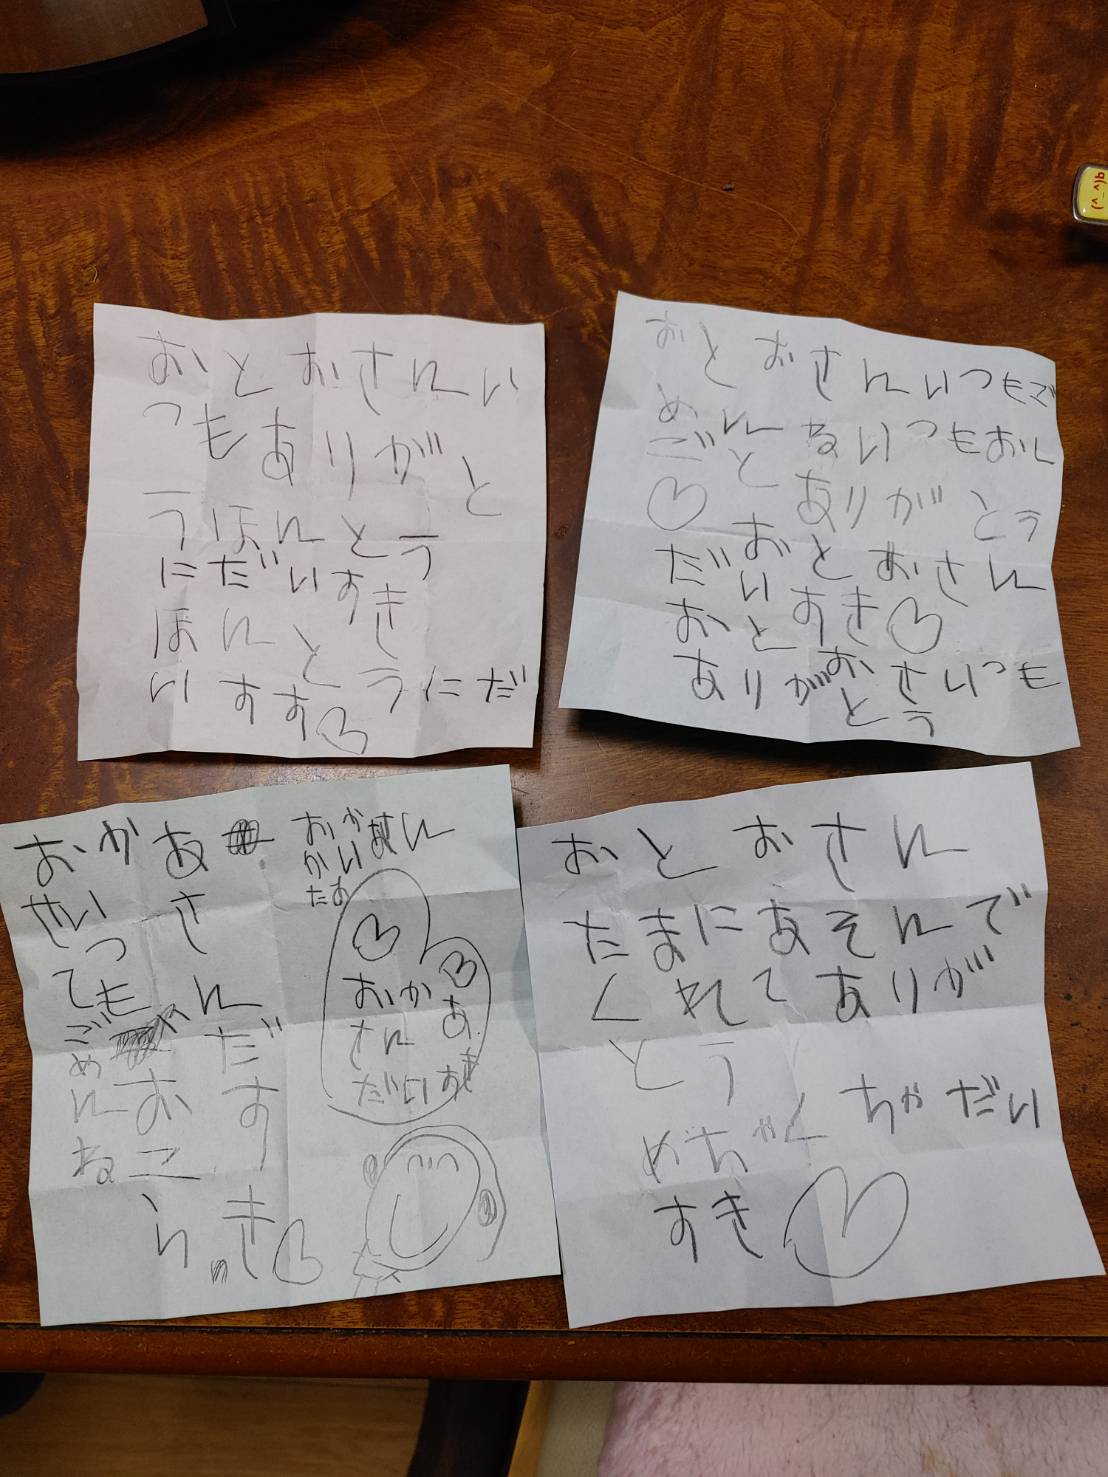 おとおさんい
つもありがと
うほんとう
にだいすき
ほんと
うにだ
いすす♡
おとおさんいつもご
めんないつもおし
ごとありがとう
♡おとおさん
だいすき♡
おとおさいつも
ありがとう
おかあさんだすき♡
いつもおこら
せてごめんね
おかあさん
♡♡
おかあ
さん
だいすき
おとおさん
たまにあそんで
くれてありが
とう
めちゃくちゃだい
すき♡